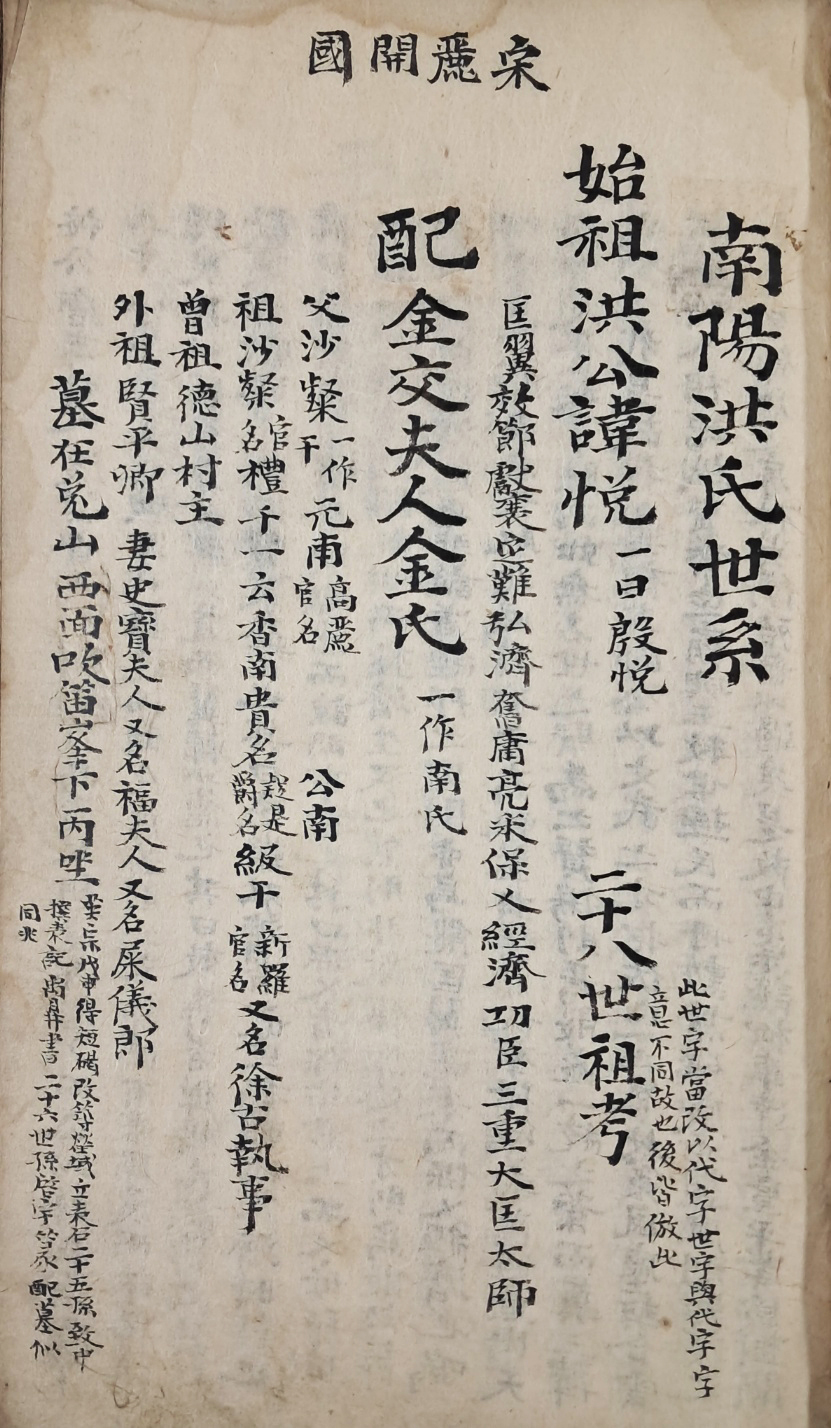 宋麗開國
南陽洪氏世系
始祖洪公諱悅 一曰殷悅 二十八世祖考
此世字當改以代字世字與代字字
意不同故也後皆倣此
匡翼效節獻襄定難弘濟奮庸亮采保乂經濟功臣三重大匡太師
配金交夫人金氏 一作南氏
父沙粲一作干元南高麗官名 公南
祖沙粲官名禮千一云香南貴名趕是爵名級干新羅官名又名徐古執事
曾祖德山村主
外祖賢平卿 妻史寶夫人又名福夫人又名屎儀郎
墓在兔山西面吹笛峯下丙坐
英宗戊申得短碣改築塋域立表石二十五孫致中
撰表記禹鼎書二十六世孫啓宇篆配墓似
同兆